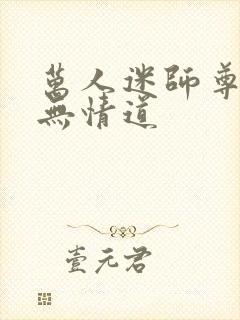 萬人迷師尊
無情道
壹元君